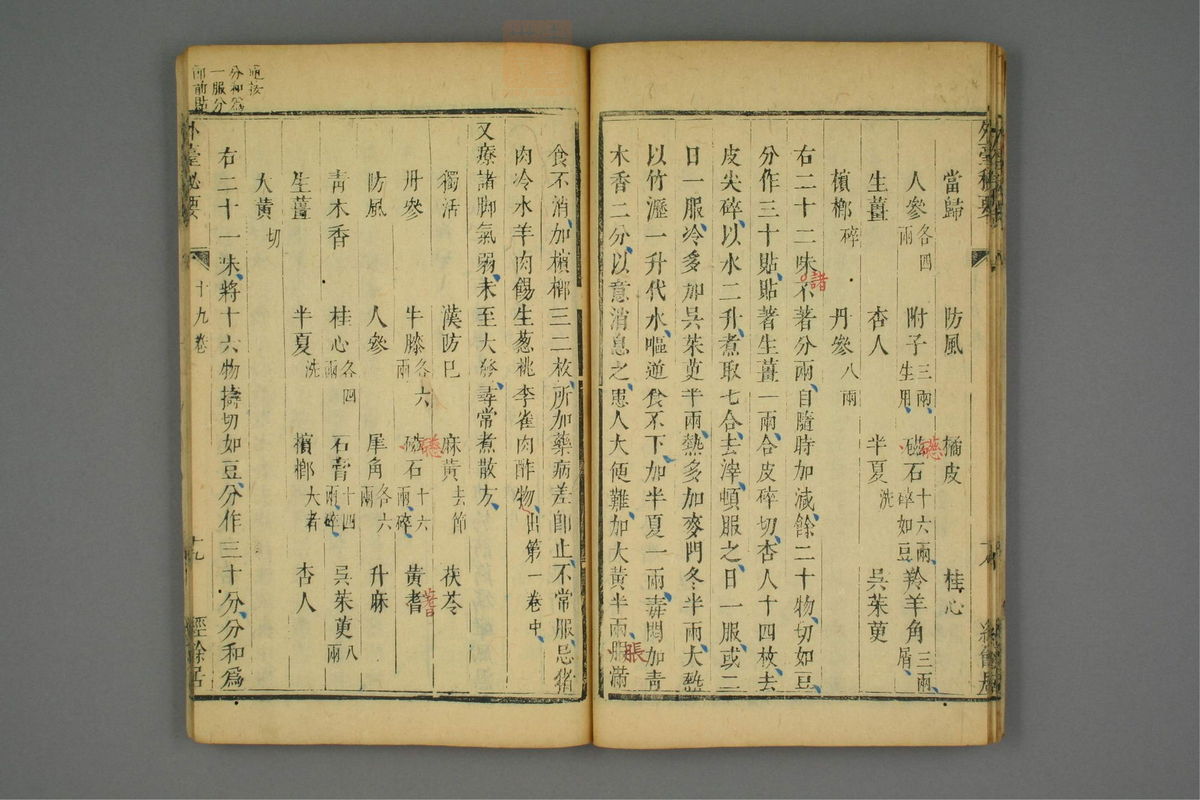 外臺秘要
當歸 防風 橘皮 桂心
人參各四兩 附子三兩生用 磁石十六兩碎如豆 羚羊角三兩屑
生薑 杏人 半夏洗 吳茱萸
檳榔碎 丹參八兩
右二十二味不著分兩自隨時加減餘二十物切如豆
分作三十貼貼著生薑一兩合皮碎切杏人十四枚去
皮尖碎以水二升煮取七合去滓頓服之日一服或二
日一服冷多加吳茱萸半兩熱多加麥門冬半兩大熱
以竹瀝一升代水嘔逆食不下加半夏一兩毒悶加青
木香二分以意消息之患人大便難加大黃半兩服滿
諸
脹
食不消加檳榔三二枚所加藥病差即止不常服忌猪
肉冷水羊肉餳生葱桃李雀肉酢物出第一卷中
又療諸脚氣弱未至大發尋常煮散方
獨活 漢防巳 麻黃去節 茯苓
丹參 牛膝各六兩 磁石十六兩碎 黃耆
防風 人參 犀角各六兩 升麻
青木香 桂心各四兩 石膏十四兩碎 吳茱萸八兩
生薑 半夏洗 檳榔大者 杏人
大黃切
右二十一味將十六物擣切如豆分作三十分分和爲
外臺秘要 十九卷 十九 經餘居
分和爲
一服分